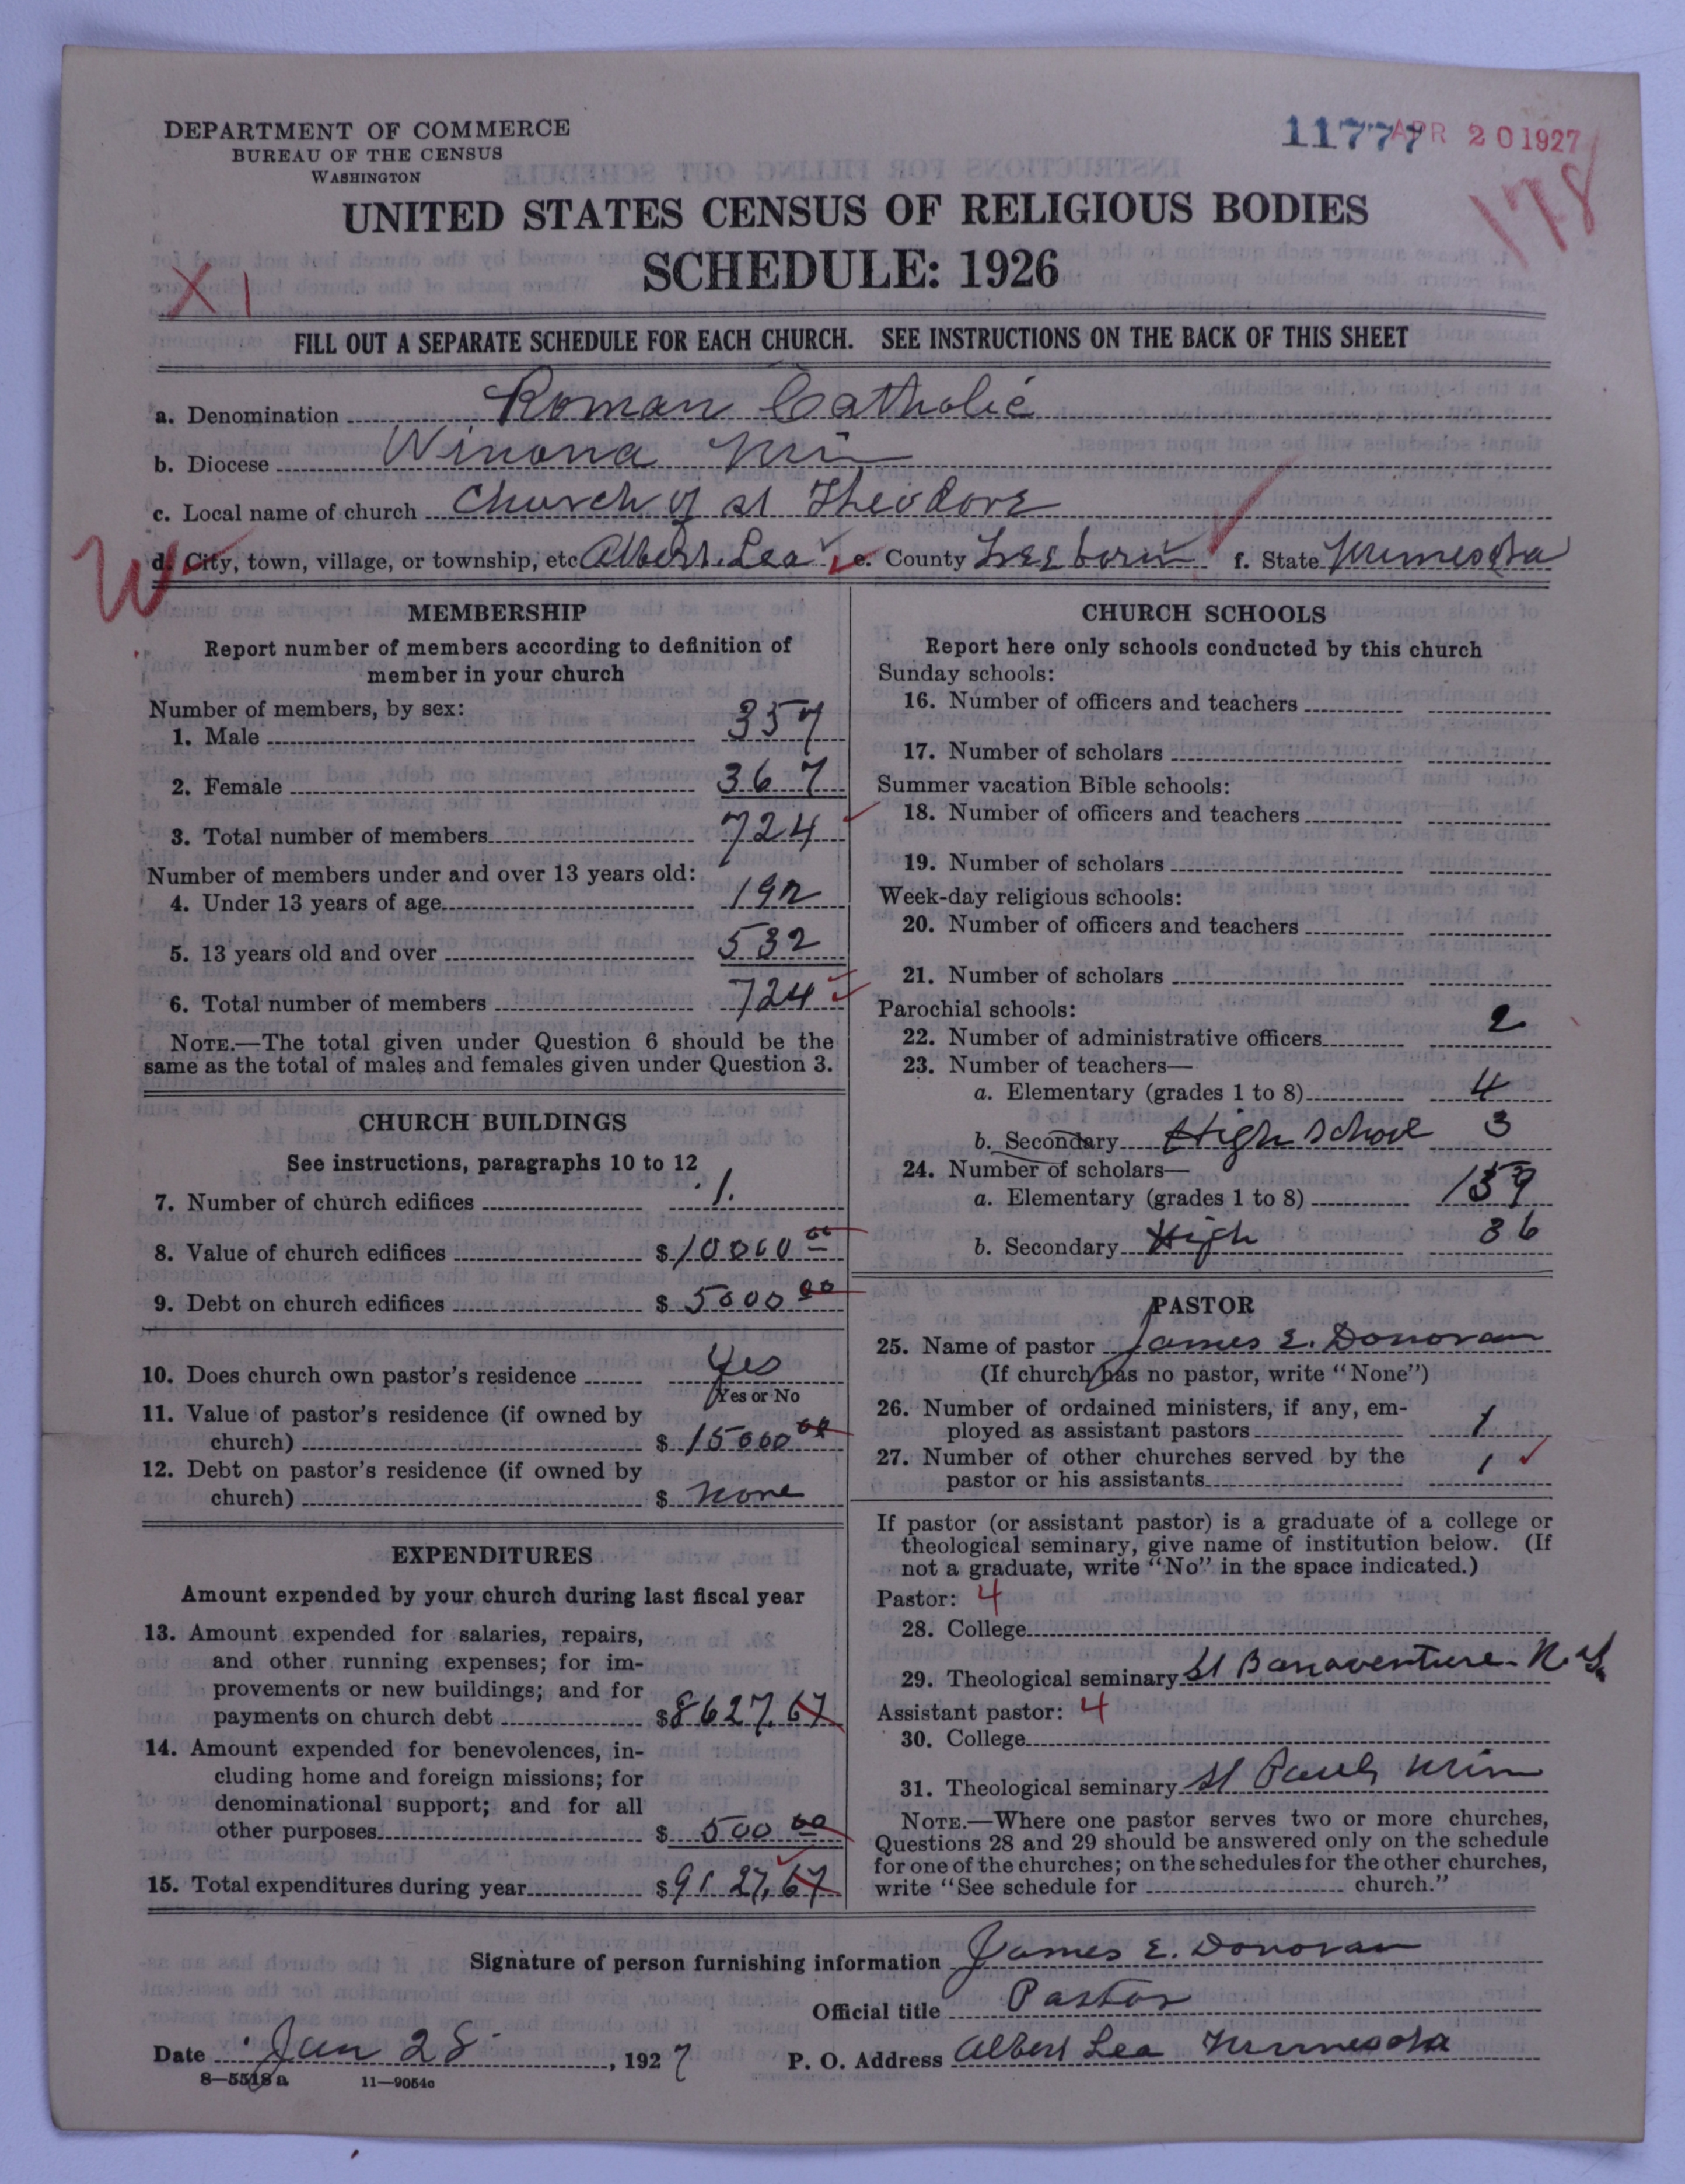 DEPARTMENT OF COMMERCE
BUREAU OF THE CENSUS
WASHINGTON
11777 APR 20 1927
178
UNITED STATES CENSUS OF RELIGIOUS BODIES
SCHEDULE: 1926
X1
FILL OUT A SEPARATE SCHEDULE FOR EACH CHURCH. SEE INSTRUCTIONS ON THE BACK OF THIS SHEET
a. Denomination Roman Catholic
b. Diocese Winona Min
c. Local name of church Church of St Theodore
W d. City, town, village, or township, etc Albert Lea e. County Freeborn f. State Minnesota
MEMBERSHIP
Report number of members according to definition of
member in your church
Number of members, by sex:
1. Male 357
2. Female 367
3. Total number of members 724
Number of members under and over 13 years old:
4. Under 13 years of age 192
5. 13 years old and over 532
6. Total number of members 724
NOTE.—The total given under Question 6 should be the
same as the total of males and females given under Question 3.
CHURCH BUILDINGS
See instructions, paragraphs 10 to 12
7. Number of church edifices 1.
8. Value of church edifices $ 10000 00
9. Debt on church edifices $ 5000 00
10. Does church own pastor's residence Yes
Yes or No
11. Value of pastor's residence (if owned by
church) $ 15000 00
12. Debt on pastor's residence (if owned by
church) $ none
EXPENDITURES
Amount expended by your church during last fiscal year
13. Amount expended for salaries, repairs,
and other running expenses; for im-
provements or new buildings; and for
payments on church debt $ 8627.67
14. Amount expended for benevolences, in-
cluding home and foreign missions; for
denominational support; and for all
other purposes $ 500 00
15. Total expenditures during year $ 9127.67
CHURCH SCHOOLS
Report here only schools conducted by this church
Sunday schools:
16. Number of officers and teachers
17. Number of scholars
Summer vacation Bible schools:
18. Number of officers and teachers
19. Number of scholars
Week-day religious schools:
20. Number of officers and teachers
21. Number of scholars
Parochial schools:
22. Number of administrative officers 2
23. Number of teachers—
a. Elementary (grades 1 to 8) 4
b. Secondary High School 3
24. Number of scholars—
a. Elementary (grades 1 to 8) 159
b. Secondary High 36
PASTOR
25. Name of pastor James E. Donovan
(If church has no pastor, write "None")
26. Number of ordained ministers, if any, em-
ployed as assistant pastors 1
27. Number of other churches served by the
pastor or his assistants 1
If pastor (or assistant pastor) is a graduate of a college or
theological seminary, give name of institution below. (If
not a graduate, write "No" in the space indicated.)
Pastor: 4
28. College
29. Theological seminary St Bonaventure N.Y.
Assistant pastor: 4
30. College
31. Theological seminary St Pauls Minn
NOTE.—Where one pastor serves two or more churches,
Questions 28 and 29 should be answered only on the schedule
for one of the churches; on the schedules for the other churches,
write "See schedule for church."
Signature of person furnishing information James E. Donovan
Official title Pastor
Date Jan 28, 1927 P. O. Address Albert Lea Minnesota
8—5518a 11—9054c